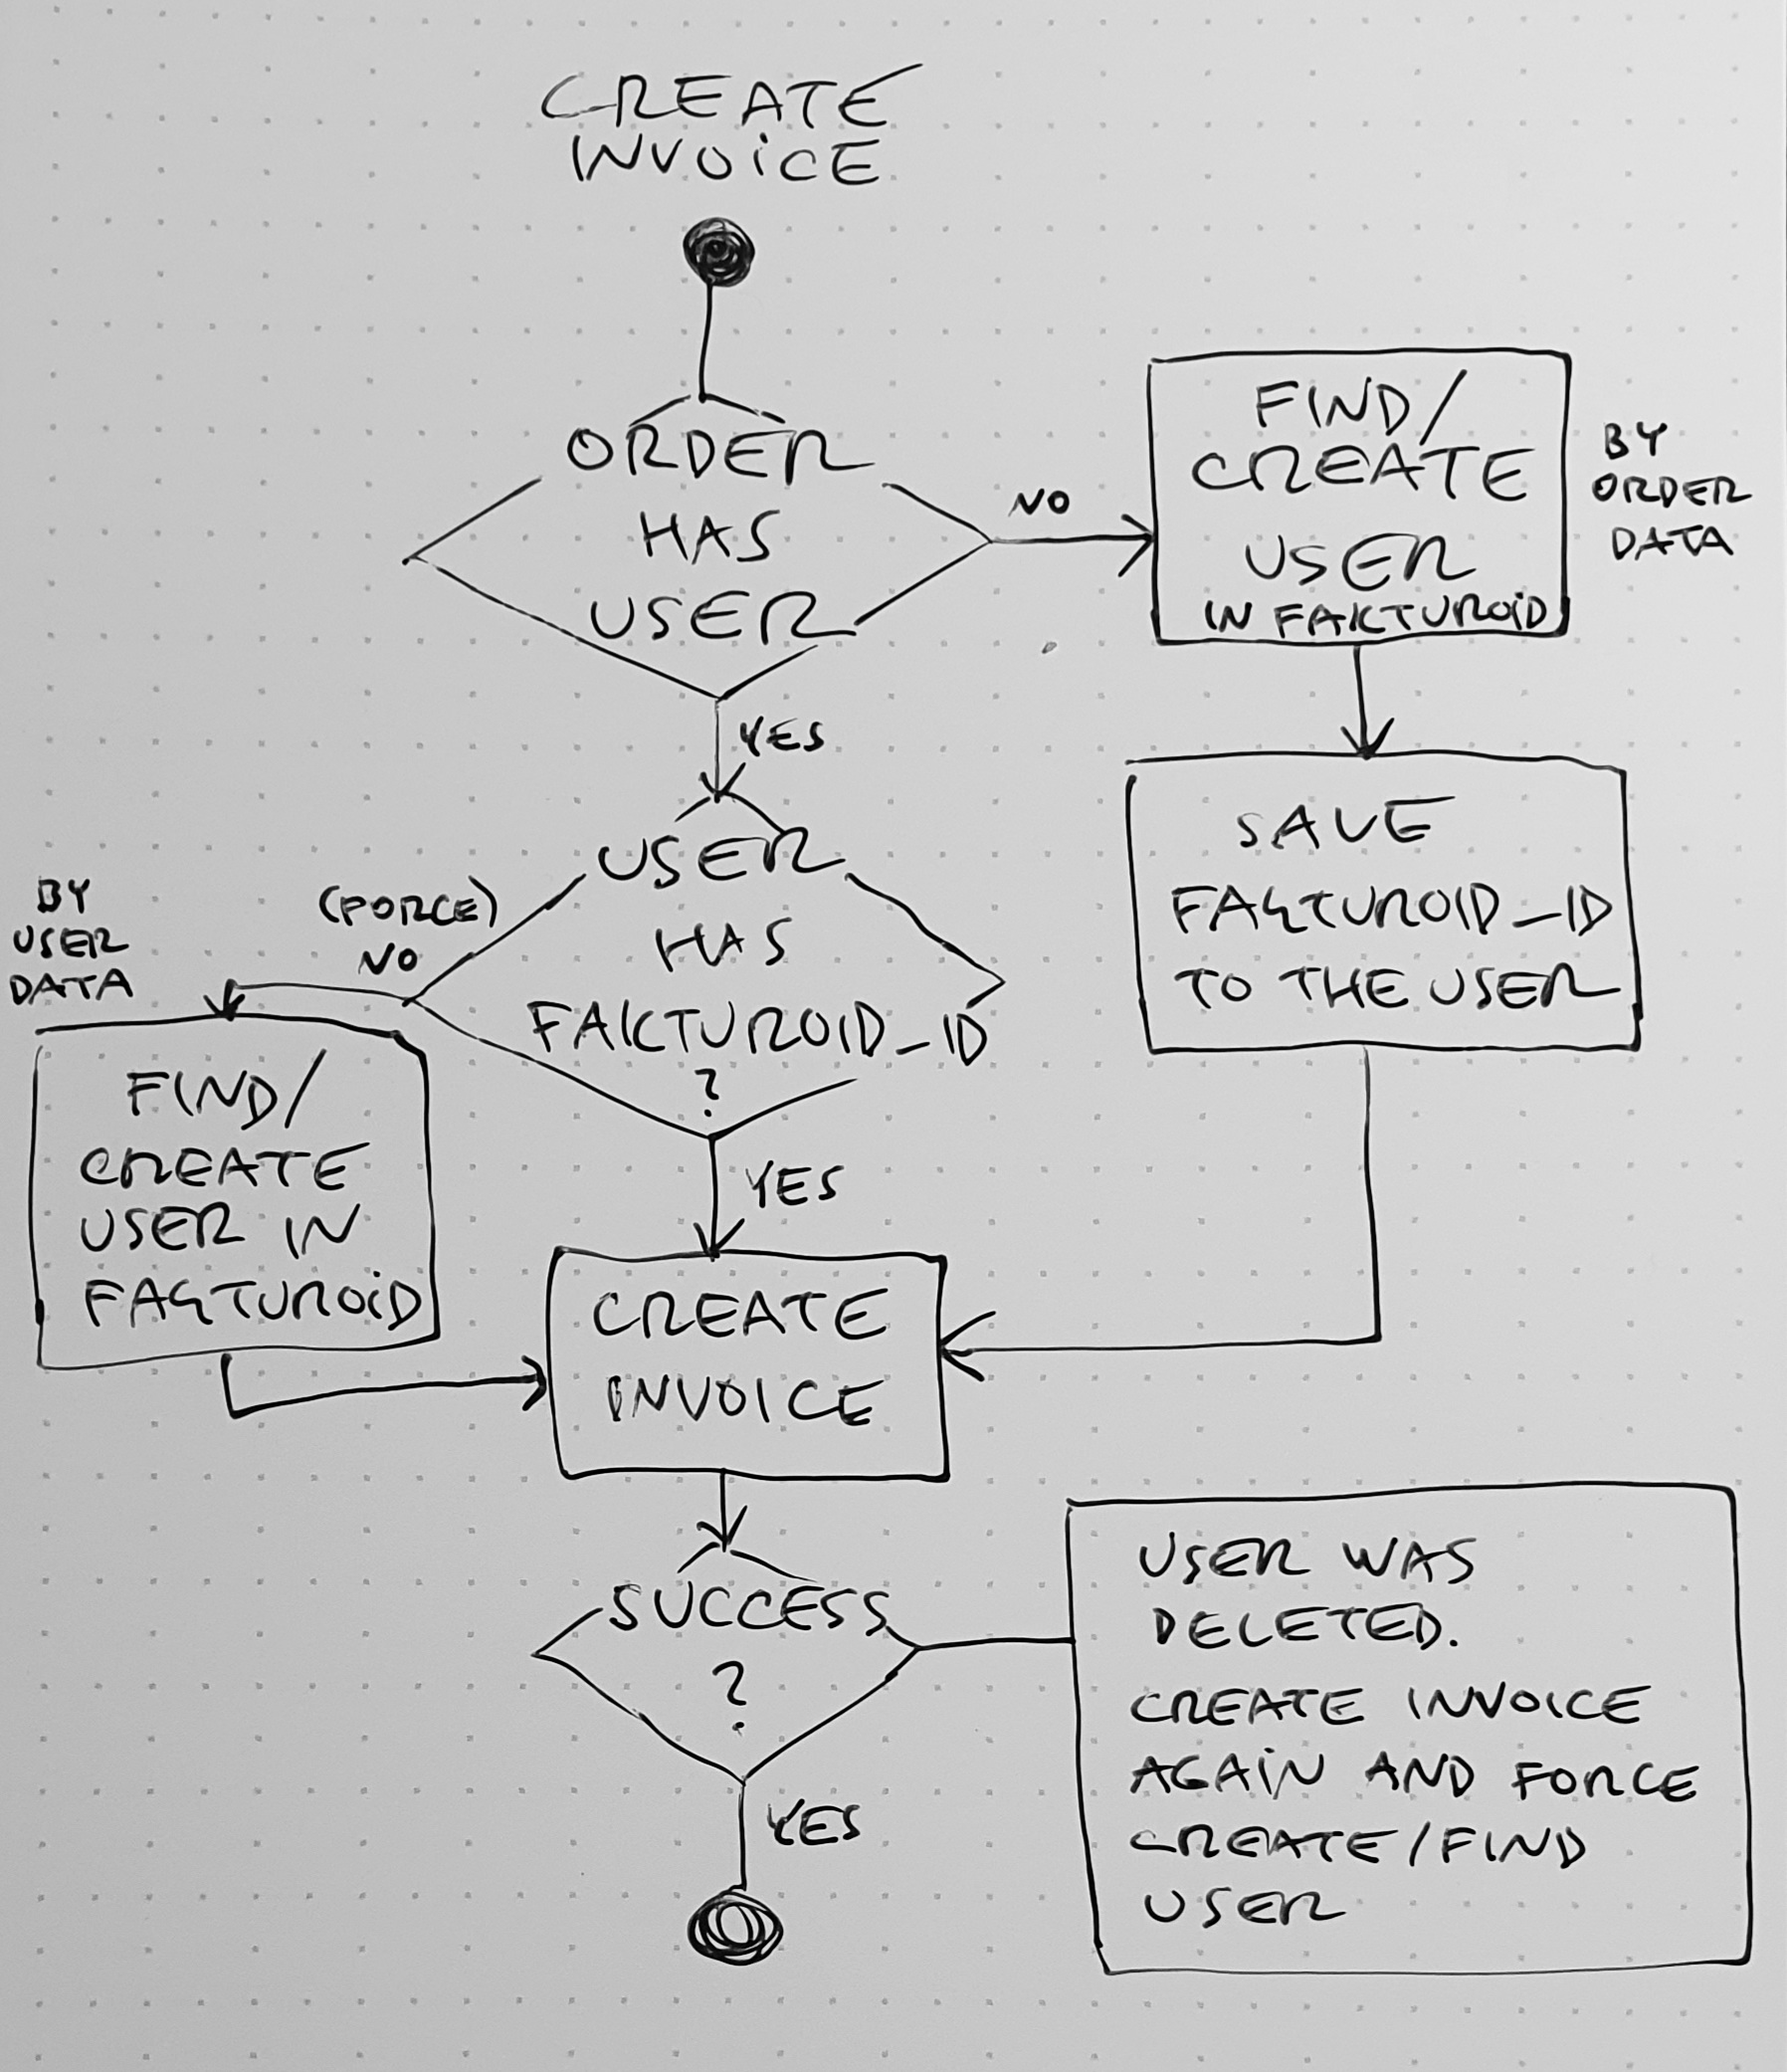 CREATE
INVOICE
ORDER
HAS
USER
NO
FIND/
CREATE
USER
IN FAKTUROID
BY
ORDER
DATA
YES
SAVE
FAKTUROID_ID
TO THE USER
USER
HAS
FAKTUROID_ID
?
(FORCE)
NO
BY
USER
DATA
FIND/
CREATE
USER IN
FAKTUROID
YES
CREATE
INVOICE
SUCCESS
?
YES
USER WAS
DELETED.
CREATE INVOICE
AGAIN AND FORCE
CREATE/FIND
USER